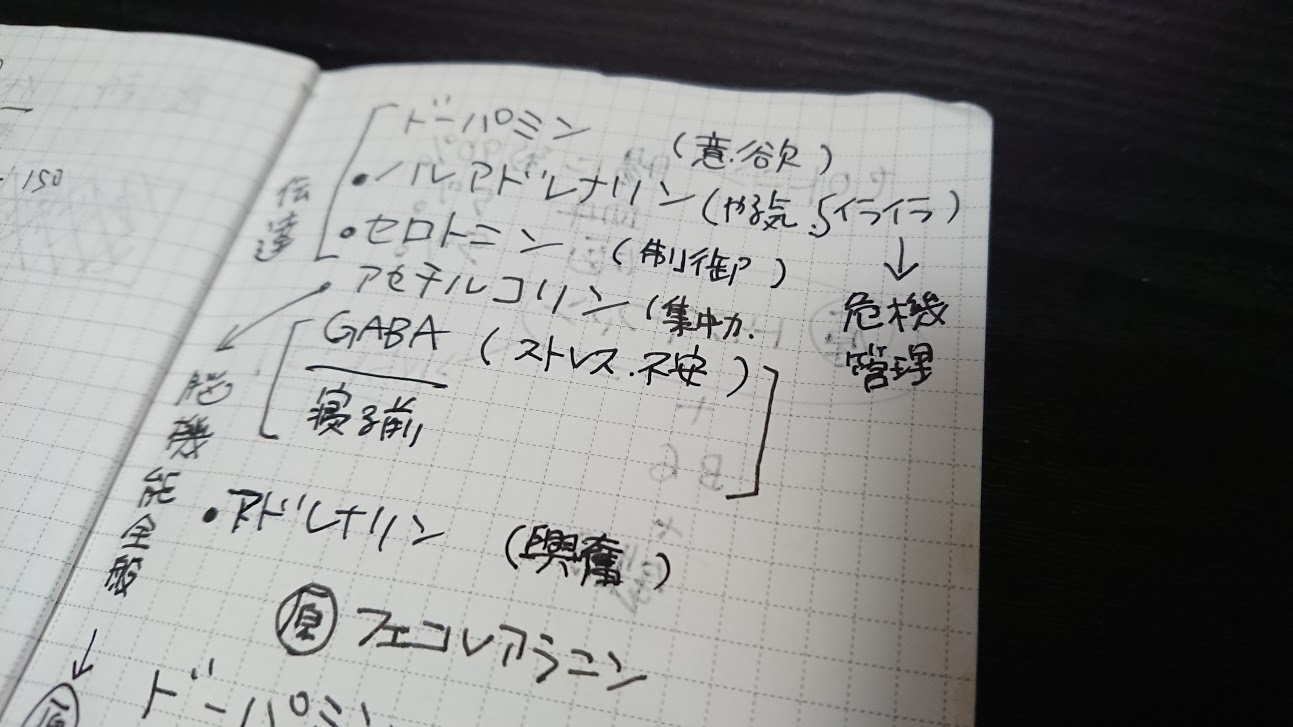 150
伝達
ドーパミン (意欲)
・ノルアドレナリン (やる気.イライラ)
・セロトニン (制御)
・アセチルコリン (集中力.
↓
危機
管理
GABA (ストレス.不安)
寝る前
脳機能全般
・アドレナリン (興奮)
原 フェコレアラニン
↓
原
ドーパミン